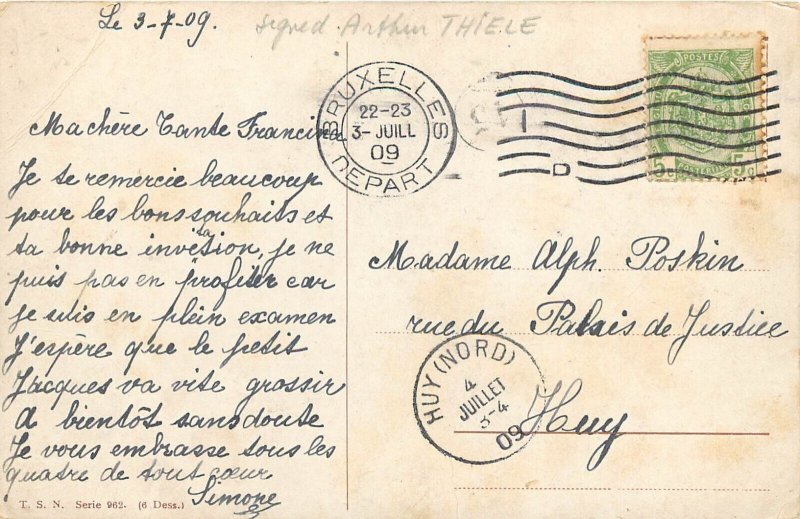 Le 3-7-09.
signed Arthur THIELE
BRUXELLES
22-23
3-JUILL
09
DEPART
POSTES
5c 5c
D
Ma chère Tante Francina
Je te remercie beaucoup
pour les bons souhaits et
ta bonne invitation, je ne
puis pas en profiter car
je suis en plein examen
J'espère que le petit
Jacques va vite grossir
A bientôt sans doute
Je vous embrasse tous les
quatre de tout cœur
Simone
Madame Alph. Poskin
rue du Palais de Justice
Huy
HUY (NORD)
4
JUILLET
3-4
09
T. S. N. Serie 962. (6 Dess.)